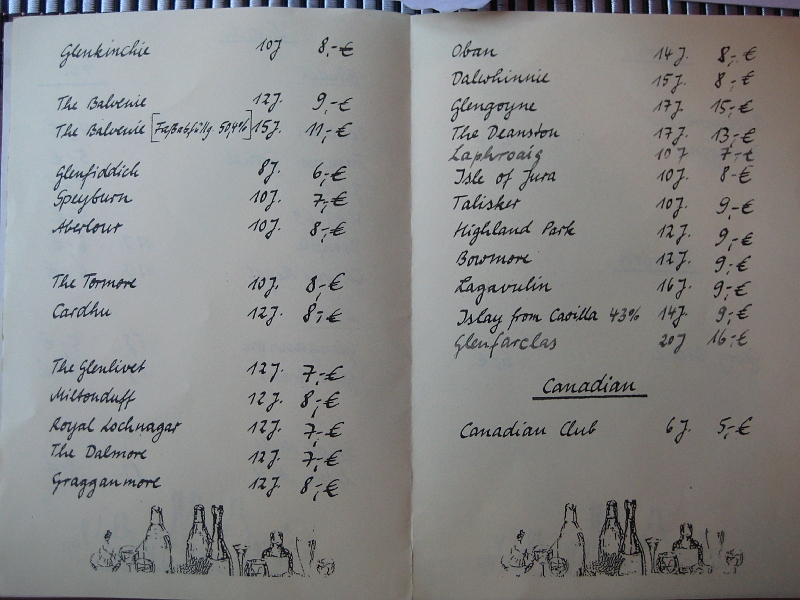 Glenkinchie 10J 8,-€
The Balvenie 12J. 9,-€
The Balvenie [Faßabfüllg. 50,4%] 15J. 11,-€
Glenfiddich 8J. 6,-€
Speyburn 10J. 7,-€
Aberlour 10J. 8,-€
The Tormore 10J. 8,-€
Cardhu 12J. 8,-€
The Glenlivet 12J. 7,-€
Miltonduff 12J. 8,-€
Royal Lochnagar 12J. 7,-€
The Dalmore 12J. 7,-€
Gragganmore 12J. 8,-€
Oban 14J. 8,-€
Dalwhinnie 15J. 8,-€
Glengoyne 17J. 15,-€
The Deanston 17J. 13,-€
Laphroaig 10J 7,-€
Isle of Jura 10J. 8-€
Talisker 10J. 9,-€
Highland Park 12J. 9,-€
Bowmore 12J. 9,-€
Lagavulin 16J. 9,-€
Islay from Caoilla 43% 14J. 9,-€
Glenfarclas 20J 16,-€
Canadian
Canadian Club 6J. 5,-€